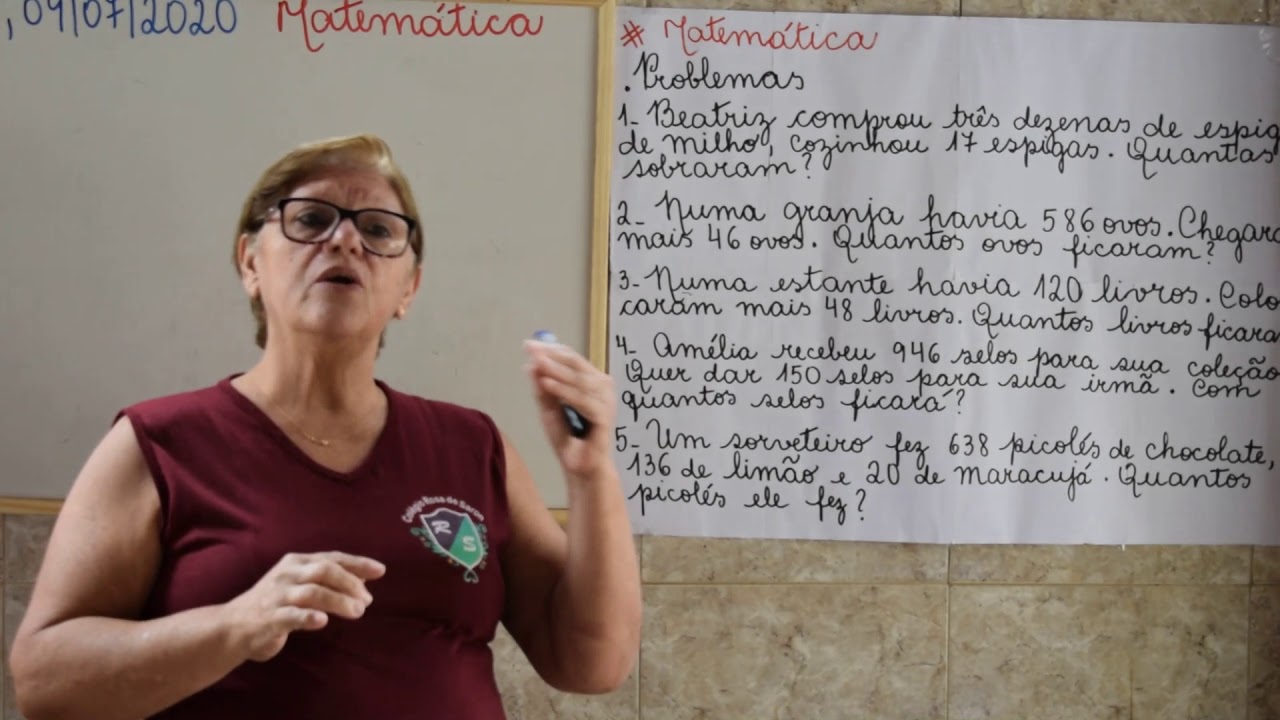 , 09/07/2020 Matemática
# Matemática
. Problemas
1- Beatriz comprou três dezenas de espig
de milho, cozinhou 17 espigas. Quantas
sobraram?
2- Numa granja havia 586 ovos. Chegara
mais 46 ovos. Quantos ovos ficaram?
3- Numa estante havia 120 livros. Colo
caram mais 48 livros. Quantos livros ficara
4- Amélia recebeu 946 selos para sua coleção
Quer dar 150 selos para sua irmã. Com
quantos selos ficará?
5- Um sorveteiro fez 638 picolés de chocolate,
136 de limão e 20 de maracujá. Quantos
picolés ele fez?
Colégio Rosa de Saron
R
S